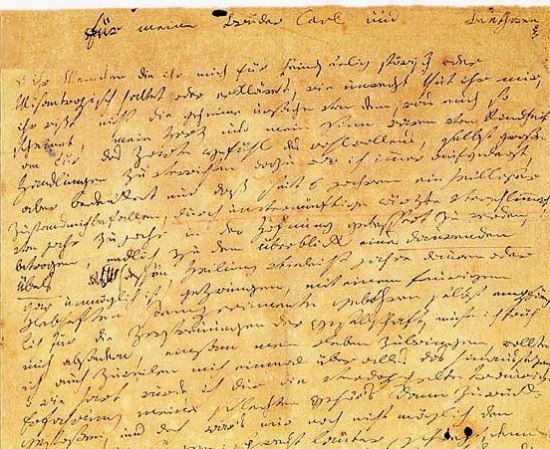 für meine Brüder Carl und Beethoven
o ihr Menschen die ihr mich für Feindseelig störisch oder
Misantropisch haltet oder erkläret, wie unrecht thut ihr mir,
ihr wißt nicht die geheime urßache von dem, was euch so
scheinet, mein Herz und mein Sinn waren von Kindheit
an für das Zarte gefühl des wohlwollens, selbst große
Handlungen zu verrichten dazu war ich immer aufgelegt,
aber bedenket nur daß seit 6 jahren ein heilloser
Zustand mich befallen, durch unvernünftige ärzte verschlimmert,
von jahr zu jahr in der Hofnung gebessert zu werden,
betrogen, endlich zu dem überblick eines daurenden
Übels dessen Heilung vieleicht jahre dauren oder
gar unmöglich ist gezwungen, mit einem feurigen
Lebhaften Temperamente gebohren selbst empfäng
lich für die Zerstreuungen der Gesellschaft, muste ich früh
mich absondern, einsam mein Leben zubringen, wollte
ich auch zuweilen mich einmal über alles das hinaussezen,
o wie hart wurde ich dur die verdoppelte traurige
Erfahrung meines schlechten Gehör's dann zurück-
gestoßen, und doch war's mir noch nicht möglich den
sprecht lauter, schreyt, denn